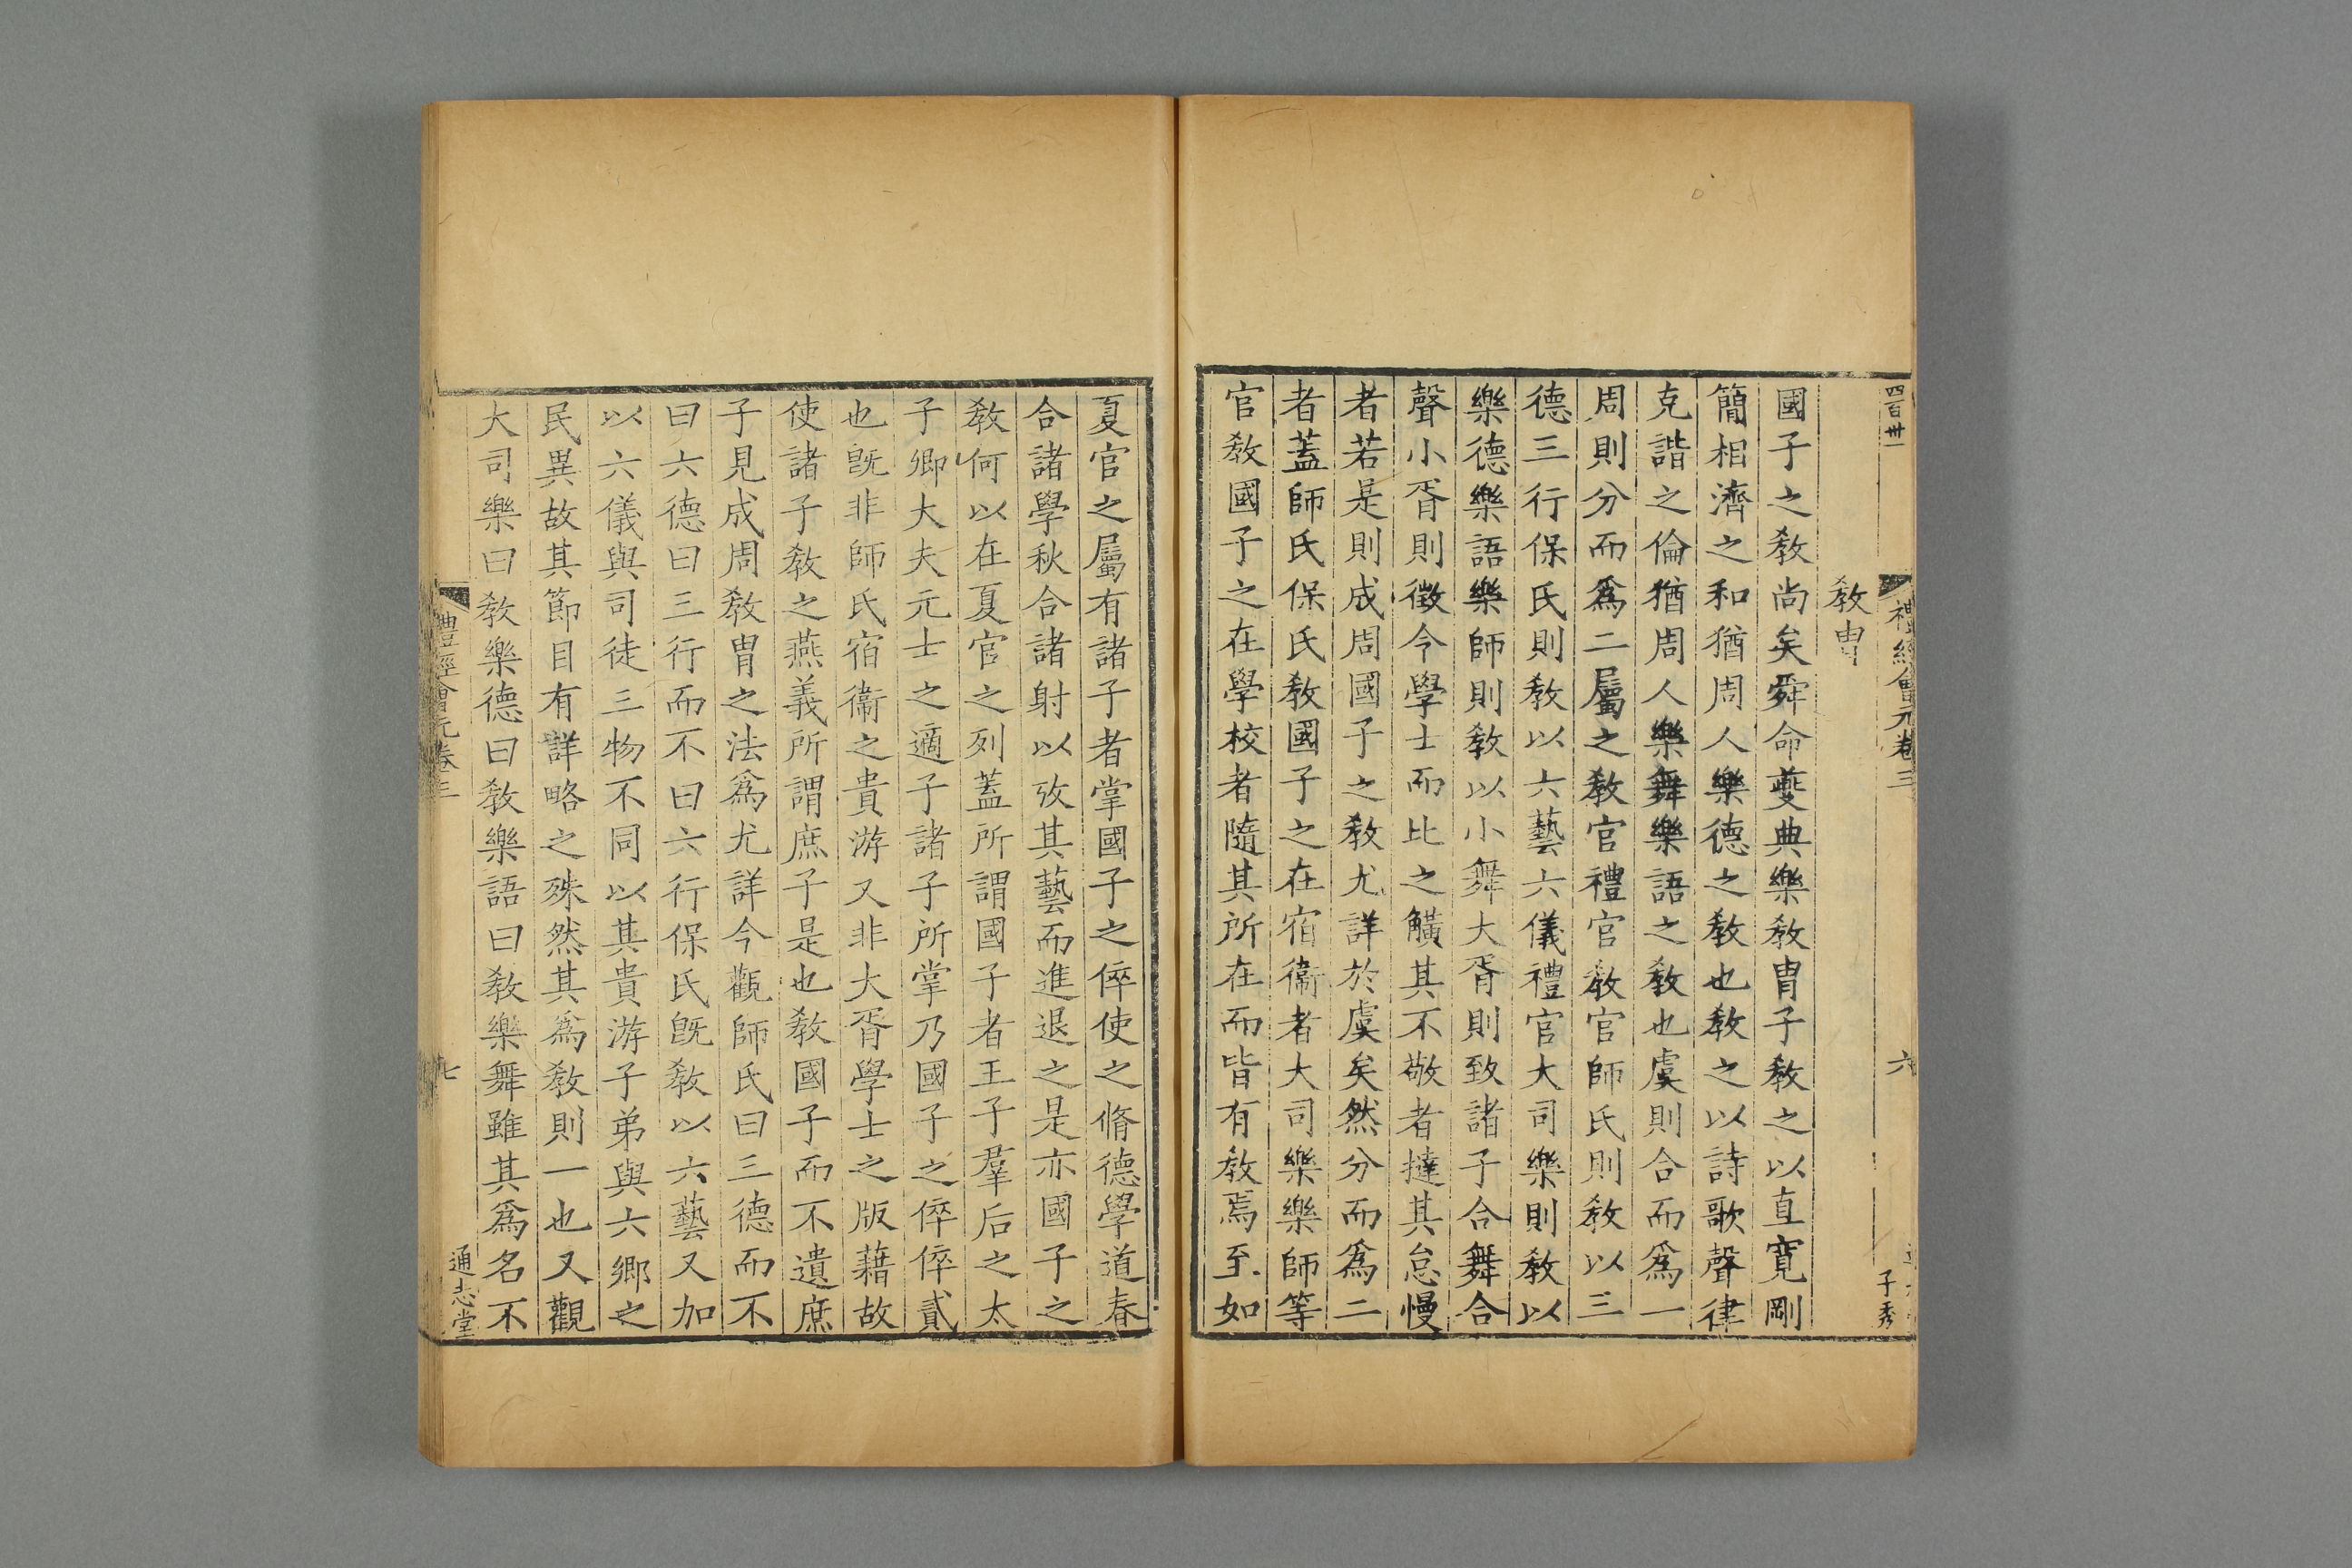 四百卅一
禮經會元卷三
六
子秀
教胄
國子之敎尚矣舜命夔典樂敎胄子敎之以直寛剛
簡相濟之和猶周人樂德之敎也敎之以詩歌聲律
克諧之倫猶周人樂舞樂語之敎也虞則合而爲一
周則分而爲二屬之敎官禮官敎官師氏則敎以三
德三行保氏則敎以六藝六儀禮官大司樂則敎以
樂德樂語樂師則敎以小舞大胥則致諸子合舞合
聲小胥則徵令學士而比之觵其不敬者撻其怠慢
者若是則成周國子之敎尤詳於虞矣然分而爲二
者蓋師氏保氏敎國子之在宿衞者大司樂樂師等
官敎國子之在學校者隨其所在而皆有敎焉至如
夏官之屬有諸子者掌國子之倅使之脩德學道春
合諸學秋合諸射以攷其藝而進退之是亦國子之
敎何以在夏官之列蓋所謂國子者王子羣后之太
子卿大夫元士之適子諸子所掌乃國子之倅倅貳
也旣非師氏宿衞之貴游又非大胥學士之版藉故
使諸子敎之燕義所謂庶子是也敎國子而不遺庶
子見成周敎胄之法爲尤詳今觀師氏曰三德而不
曰六德曰三行而不曰六行保氏旣敎以六藝又加
以六儀與司徒三物不同以其貴游子弟與六鄉之
民異故其節目有詳略之殊然其爲敎則一也又觀
大司樂曰敎樂德曰敎樂語曰敎樂舞雖其爲名不
禮經會元卷三
七
通志堂